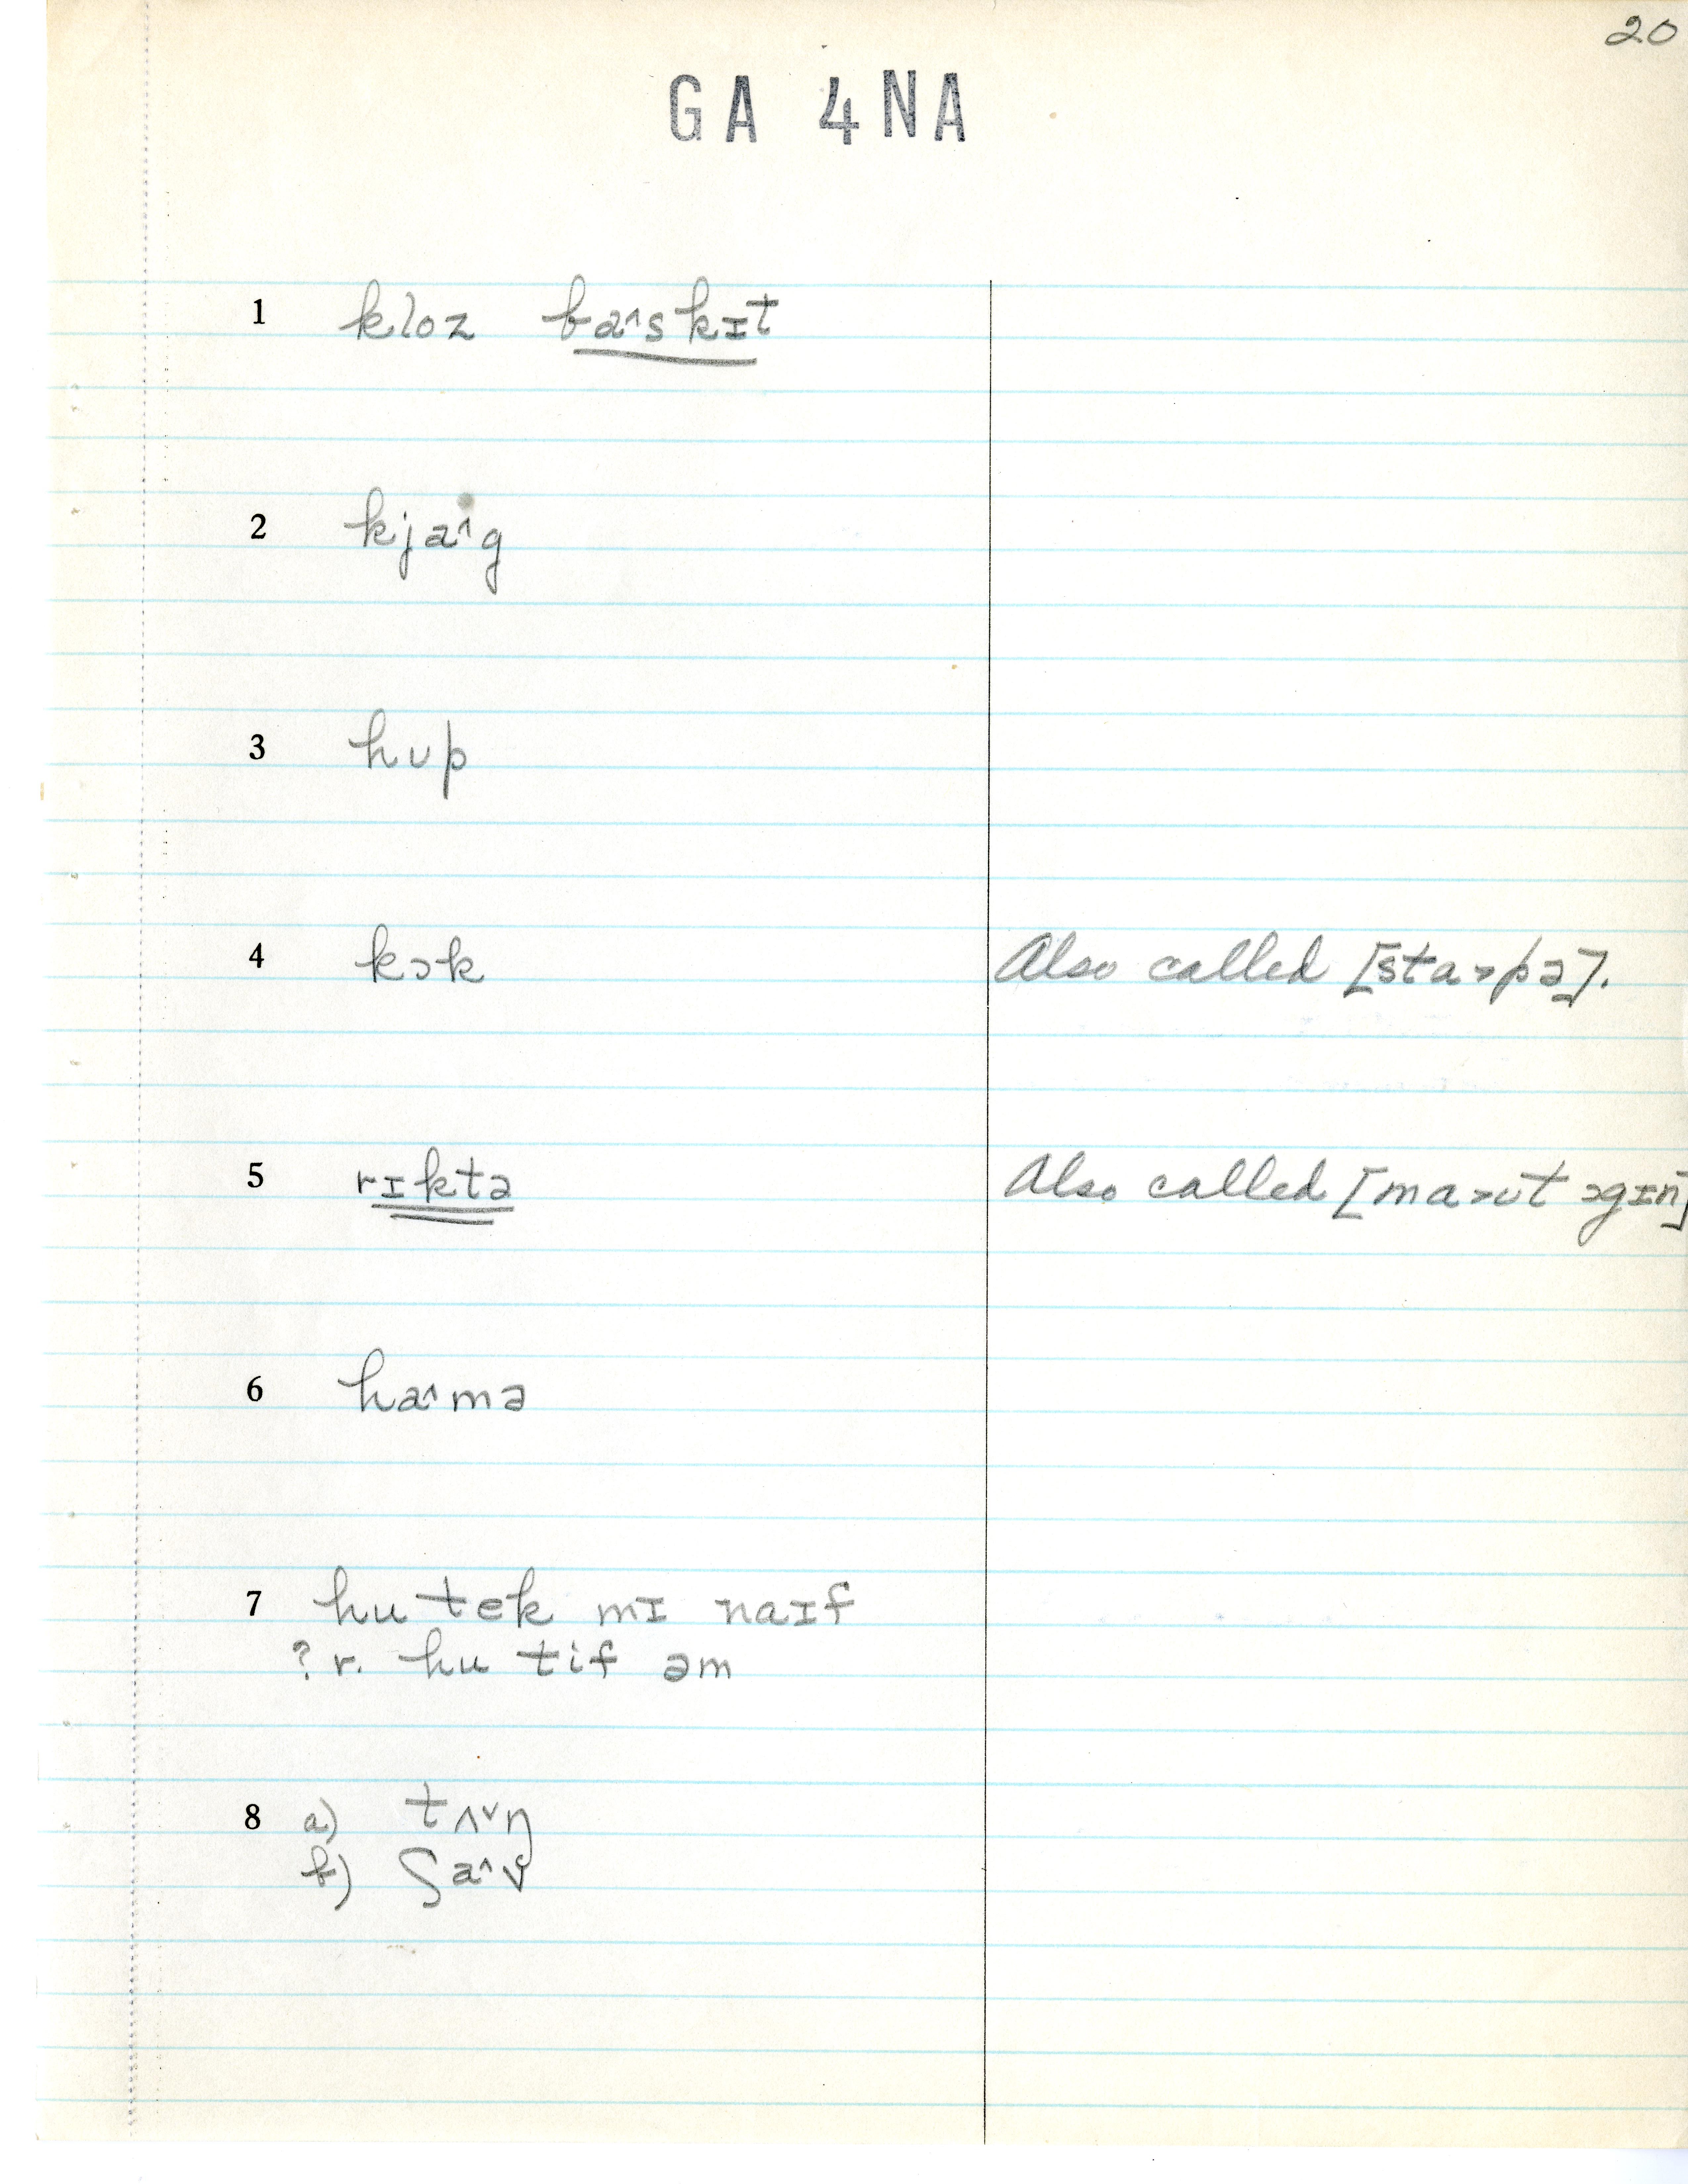 20
GA 4NA
1 kloz ba^skɪt
2 kja^g
3 hʊp
4 kɔk Also called [sta>pə].
5 rɪktə Also called [ma>ʊt ɔgɪn]
6 ha^mə
7 hu tek mɪ naɪf
? r. hu tif əm
8 a) tʌˇŋ
b) ʃa^v̥